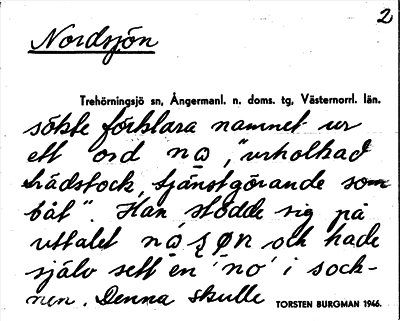 2
Nordsjön
Trehörningsjö sn, Ångermanl. n. doms. tg, Västernorrl. län.
sökte förklara namnet ur
ett ord nọ, "urholkad
trädstock, tjänstgörande som
båt". Han stödde sig på
uttalet nọʂøn och hade
själv sett en 'no' i sock-
nen. Denna skulle
TORSTEN BURGMAN 1946.